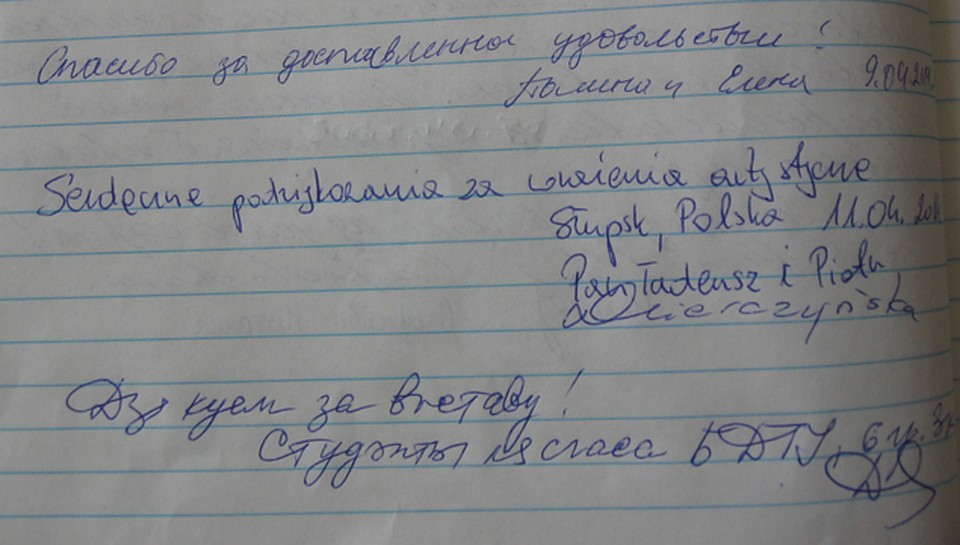 Спасибо за доставленное удовольствие!
Полина и Елена 9.04.201
Serdeczne podziękowania za wrażenia artystyczne
Słupsk, Polska 11.04.201
Pan Tadeusz i Piotr,
Дзякуем за выставу!
Студэнты лясгаса БДТУ, 6 гр. 3